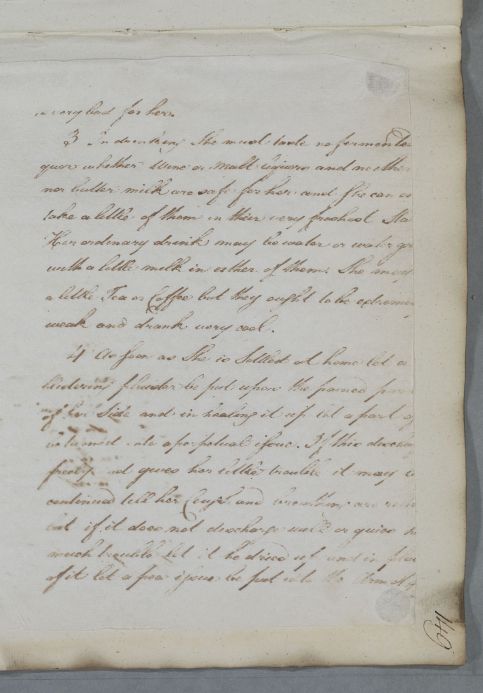 is very bad for her.
3 In drinking She must taste no fermented
quor whether Wine or Malt liquors and neither
nor butter milk are safe for her and She can o
take a little of them in thier very freshest Sta
Her ordenary drink may be water or water gr
with a little milk in either of them. She may
a little Tea or Coffee but they ought to be extreme
weak and drank very cool.
4 As soon as She is Settled at home let a
blistering plaister be put upon the pained part
of her Side and in healing it up let a part of
it turned into a perpetual issue. If this discharg
freely and gives her little trouble it may
continued till her Cough and breathing are
but if it does not discharge well or gives
much trouble let it be dried up and in place
of it let a pea issue be put into the Arm
149